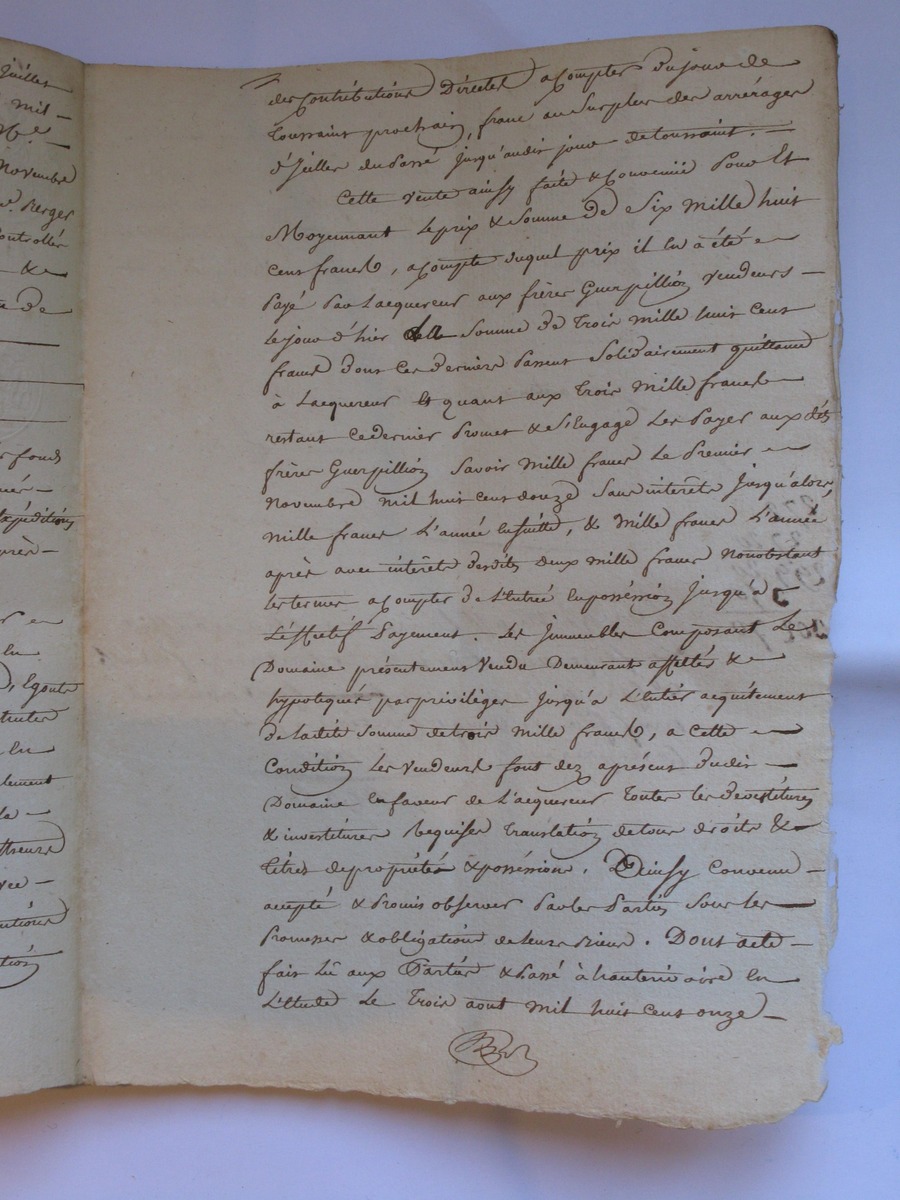 Juillet
mil —
Novembre
Berger
Controllés
&
de
fonds
Expéditions
en
en
Egouts
en
des Contributions Directes acompter du jour de
toussaint prochain, franc au Surplus des arrérages
d'Jcelles du Passé jusqu'audit jour de toussaint. —
Cette vente ainsy faite & Convenüe Pour Et
Moyennant le prix & Somme de Six mille huit
cens francs, acompte duquel prix il En a été —
Payé Par L'acquereur aux frères Guerpillion vendeurs —
le jour d'hier la Somme de Trois mille huit Cent
francs dont Ces derniers Passent Solidairement quittance
à L'acquereur Et quant aux Trois mille francs —
restant Ce dernier Promet & s'Engage Les Payer aux dits
frères Guerpillion Savoir mille francs le Premier —
Novembre mil huit cent douze Sans intérêts Jusqu'alors,
mille francs L'année Ensuitte, & mille francs L'année
après avec intérêts desdits deux mille francs Nonobstant
les termes acompter de L'Entrée En possession Jusqu'à
L'éffectif Payement. Les Jmmeubles Composant Le
Domaine présentement vendu Demeurants affectés &
hypotiqués par privilèges Jusqu'à L'Entier acquittement
de Ladite Somme de trois mille francs, a Cette —
Condition Les vendeurs font dez aprésent dudit —
Domaine En faveur de L'acquereur toutes les devestitures
& investitures Requises Translation de tous droits &
titres de propriétés & possessions. D'ainsy Convenu —
accepté & Promis observer Par les Parties Sous les
Promesses & obligations de leurs Biens. Dont acte —
fait Lû aux Parties & Passé à hauterivoire En
L'Etude Le Trois aout mil huit cent onze —